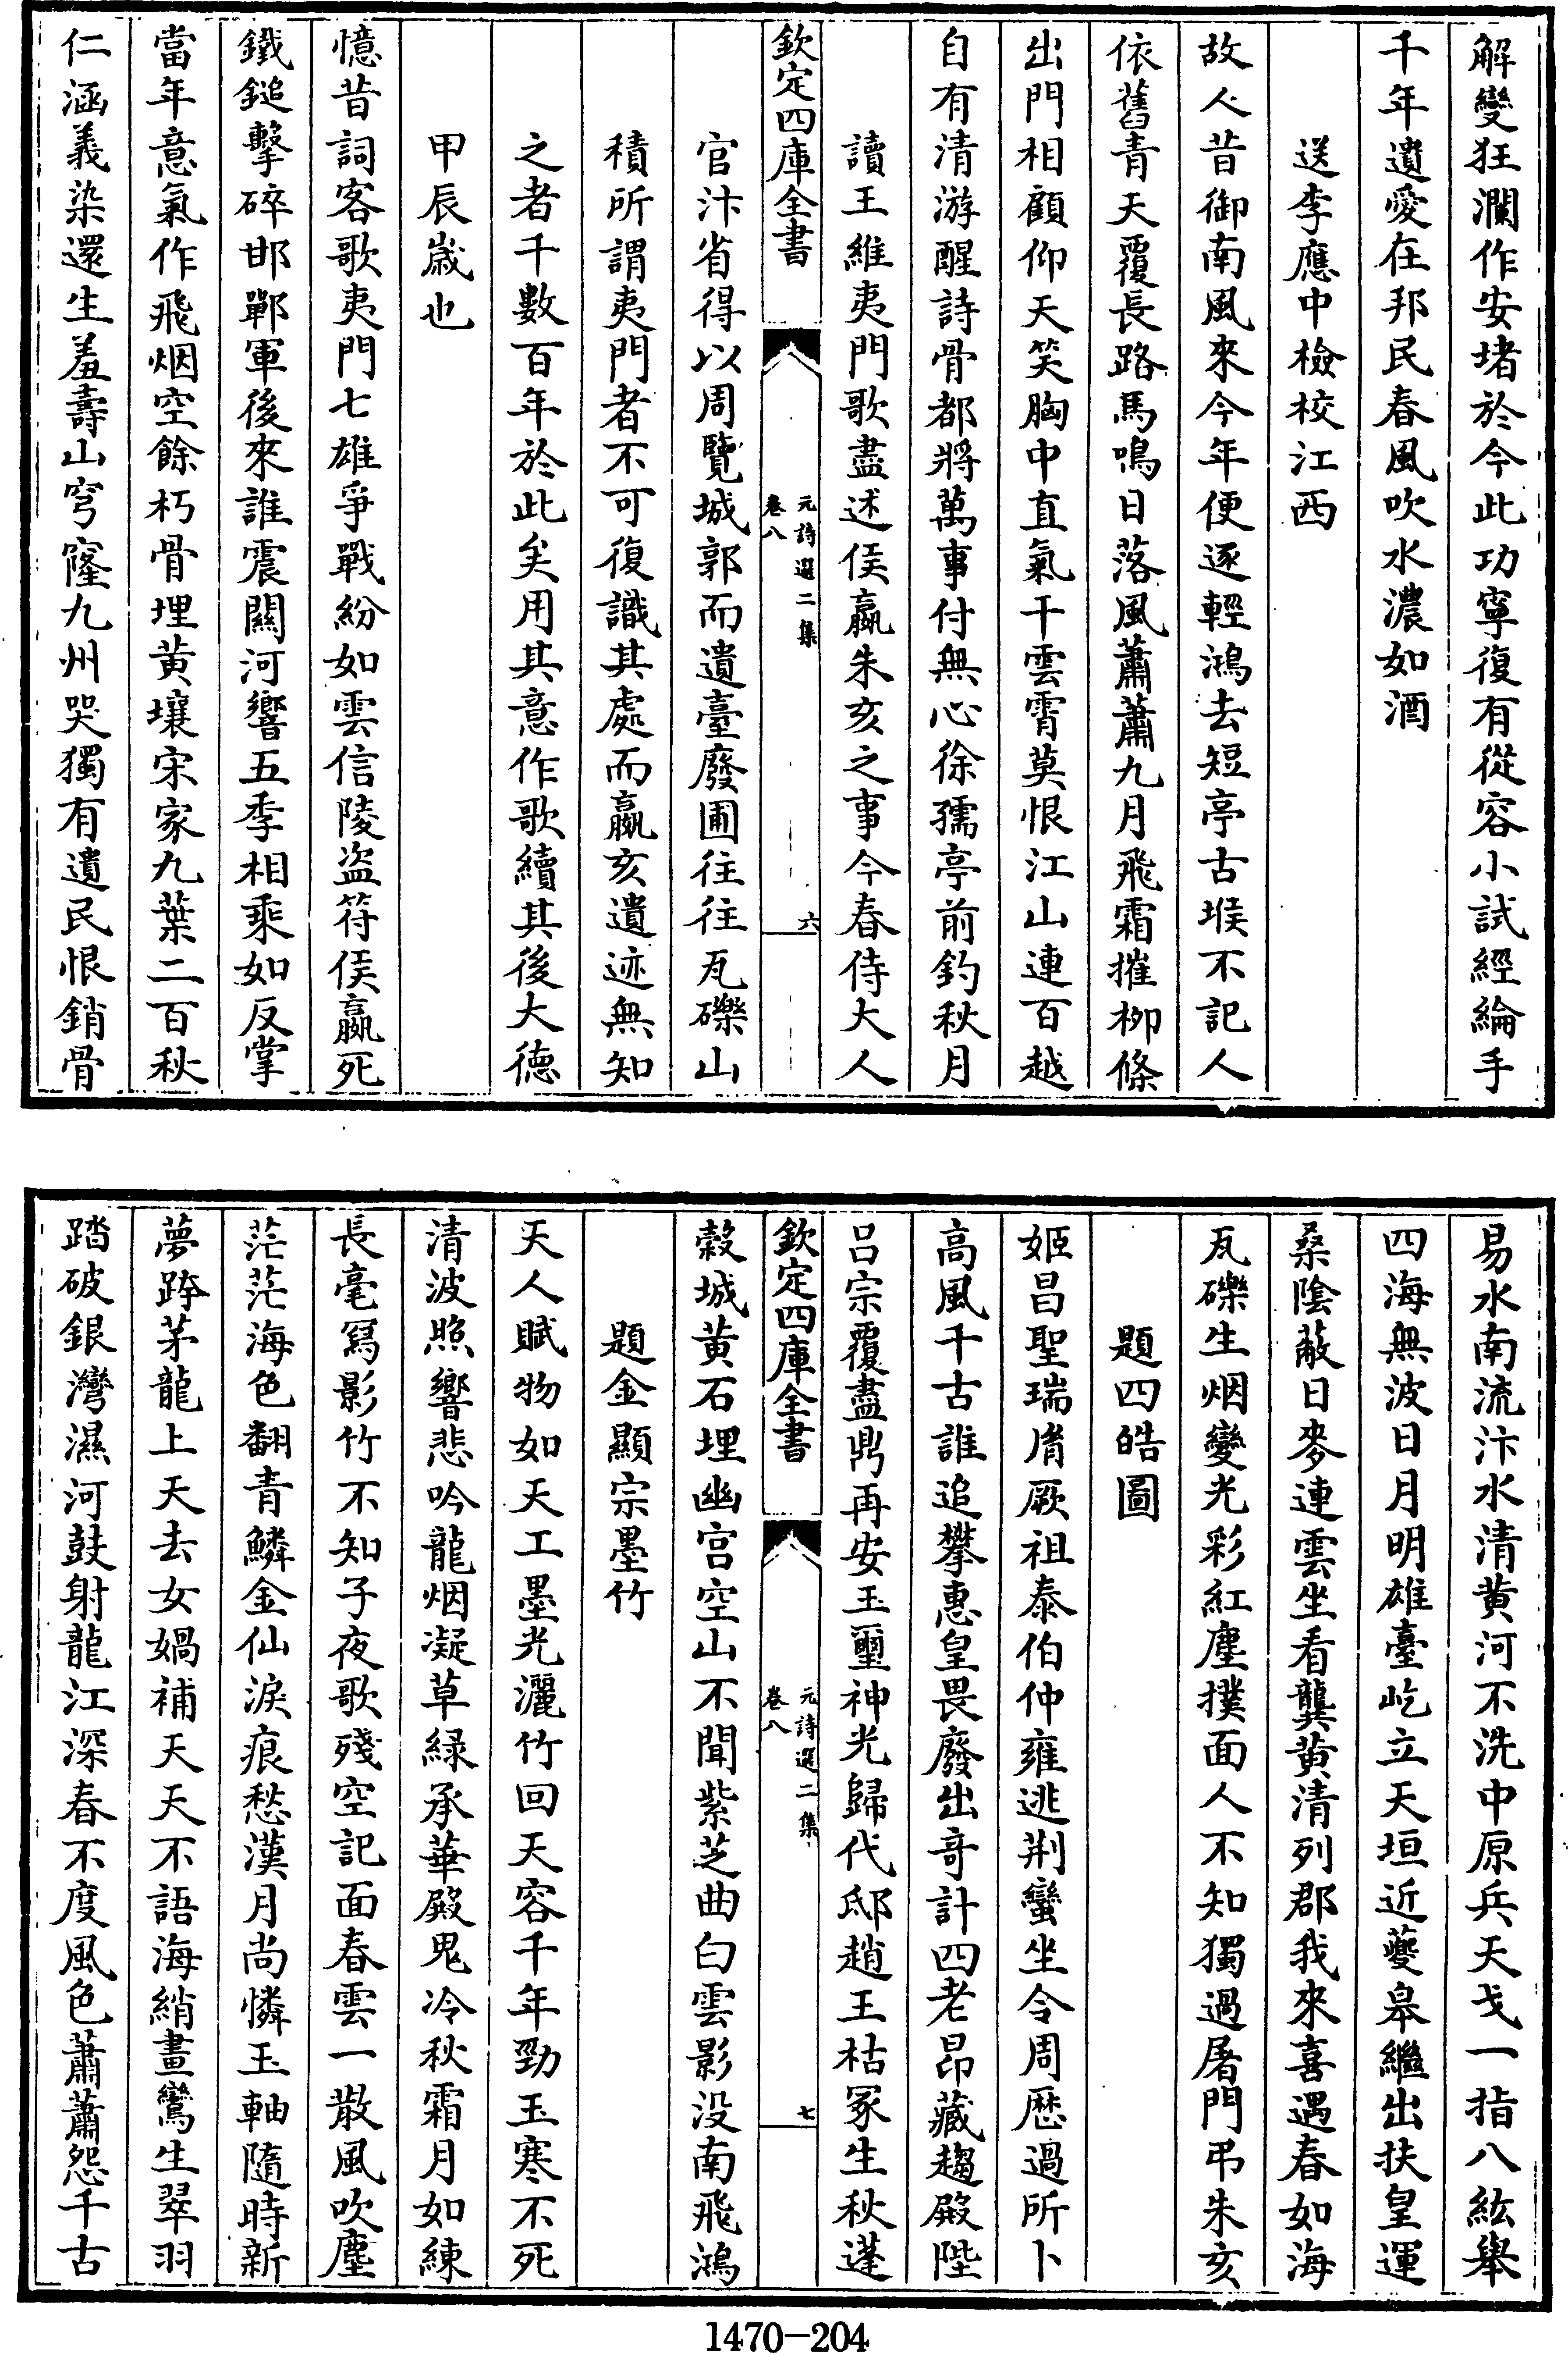 解變狂瀾作安堵於今此功寧復有從容小試經綸手
千年遺愛在邦民春風吹水濃如酒
送李應中檢校江西
故人昔御南風來今年便逐輕鴻去短亭古堠不記人
依舊青天覆長路馬鳴日落風蕭蕭九月飛霜摧栁條
出門相顧仰天笑胸中直氣干雲霄莫恨江山連百越
自有清游醒詩骨都將萬事付無心徐孺亭前釣秋月
讀王維夷門歌盡述侯嬴朱亥之事今春侍大人
欽定四庫全書
元詩選二集
卷八
六
官汴省得以周覽城郭而遺臺廢圃往往瓦礫山
積所謂夷門者不可復識其處而嬴亥遺迹無知
之者千數百年於此矣用其意作歌續其後大德
甲辰嵗也
憶昔詞客歌夷門七雄爭戰紛如雲信陵盗符侯嬴死
鐵鎚擊碎邯鄲軍後來誰震闗河響五季相乘如反掌
當年意氣作飛烟空餘朽骨埋黄壤宋家九葉二百秋
仁涵義染還生羞壽山穹窿九州哭獨有遺民恨銷骨
易水南流汴水清黄河不洗中原兵天戈一指八紘舉
四海無波日月明雄臺屹立天垣近夔皋繼出扶皇運
桑陰蔽日麥連雲坐看龔黄清列郡我來喜遇春如海
瓦礫生烟變光彩紅塵撲面人不知獨過屠門弔朱亥
題四皓圖
姬昌聖瑞胥厥祖泰伯仲雍逃荆蠻坐令周厯過所卜
高風千古誰追攀惠皇畏廢出奇計四老昂藏趨殿陛
吕宗覆盡鼎再安玉璽神光歸代邸趙王枯冢生秋蓬
欽定四庫全書
元詩選二集
卷八
七
榖城黄石埋幽宫空山不聞紫芝曲白雲影没南飛鴻
題金顯宗墨竹
天人賦物如天工墨光灑竹回天容千年勁玉寒不死
清波照響悲吟龍烟凝草緑承華殿鬼冷秋霜月如練
長毫冩影竹不知子夜歌殘空記面春雲一散風吹塵
茫茫海色翻青鱗金仙淚痕愁漢月尚憐玉軸隨時新
夢跨茅龍上天去女媧補天天不語海綃畫鸞生翠羽
踏破銀灣濕河鼓射龍江深春不度風色蕭蕭怨千古
1470—204